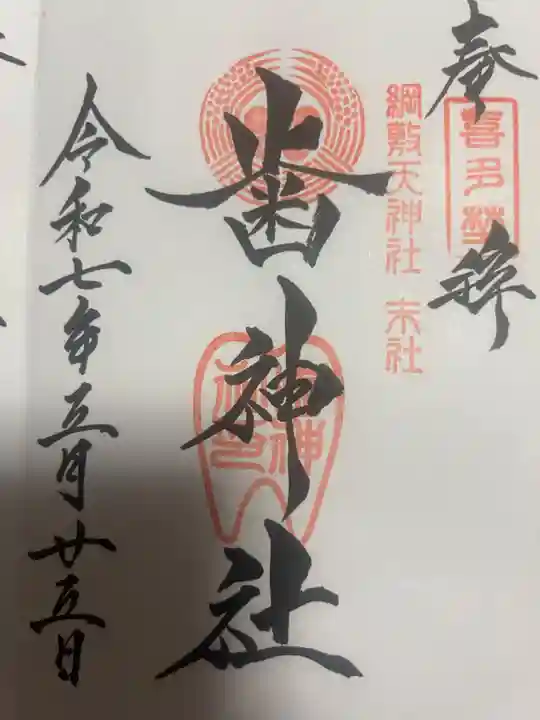 奉拝
喜多埜
綱敷天神社 末社
歯神社
令和七年五月廿五日